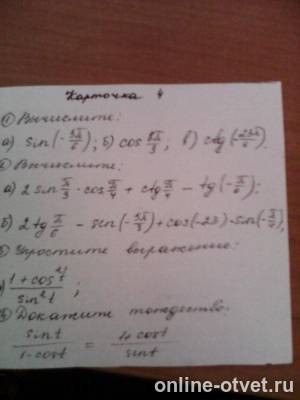 Карточка 4
① Вычислите:
а) sin(-5π/6); б) cos 8π/3; в) ctg(23π/4).
② Вычислите:
а) 2 sin π/3 · cos π/4 + ctg π/4 - tg(-π/6);
б) 2 tg π/6 - sin(-5π/3) + cos(-2π) · sin(-π/4),
③ Упростите выражение:
) 1 + cos²t / sin²t ;
④ Докажите тождество:
sin t / 1-cos t = 4 cos t / sin t
online-otvet.ru